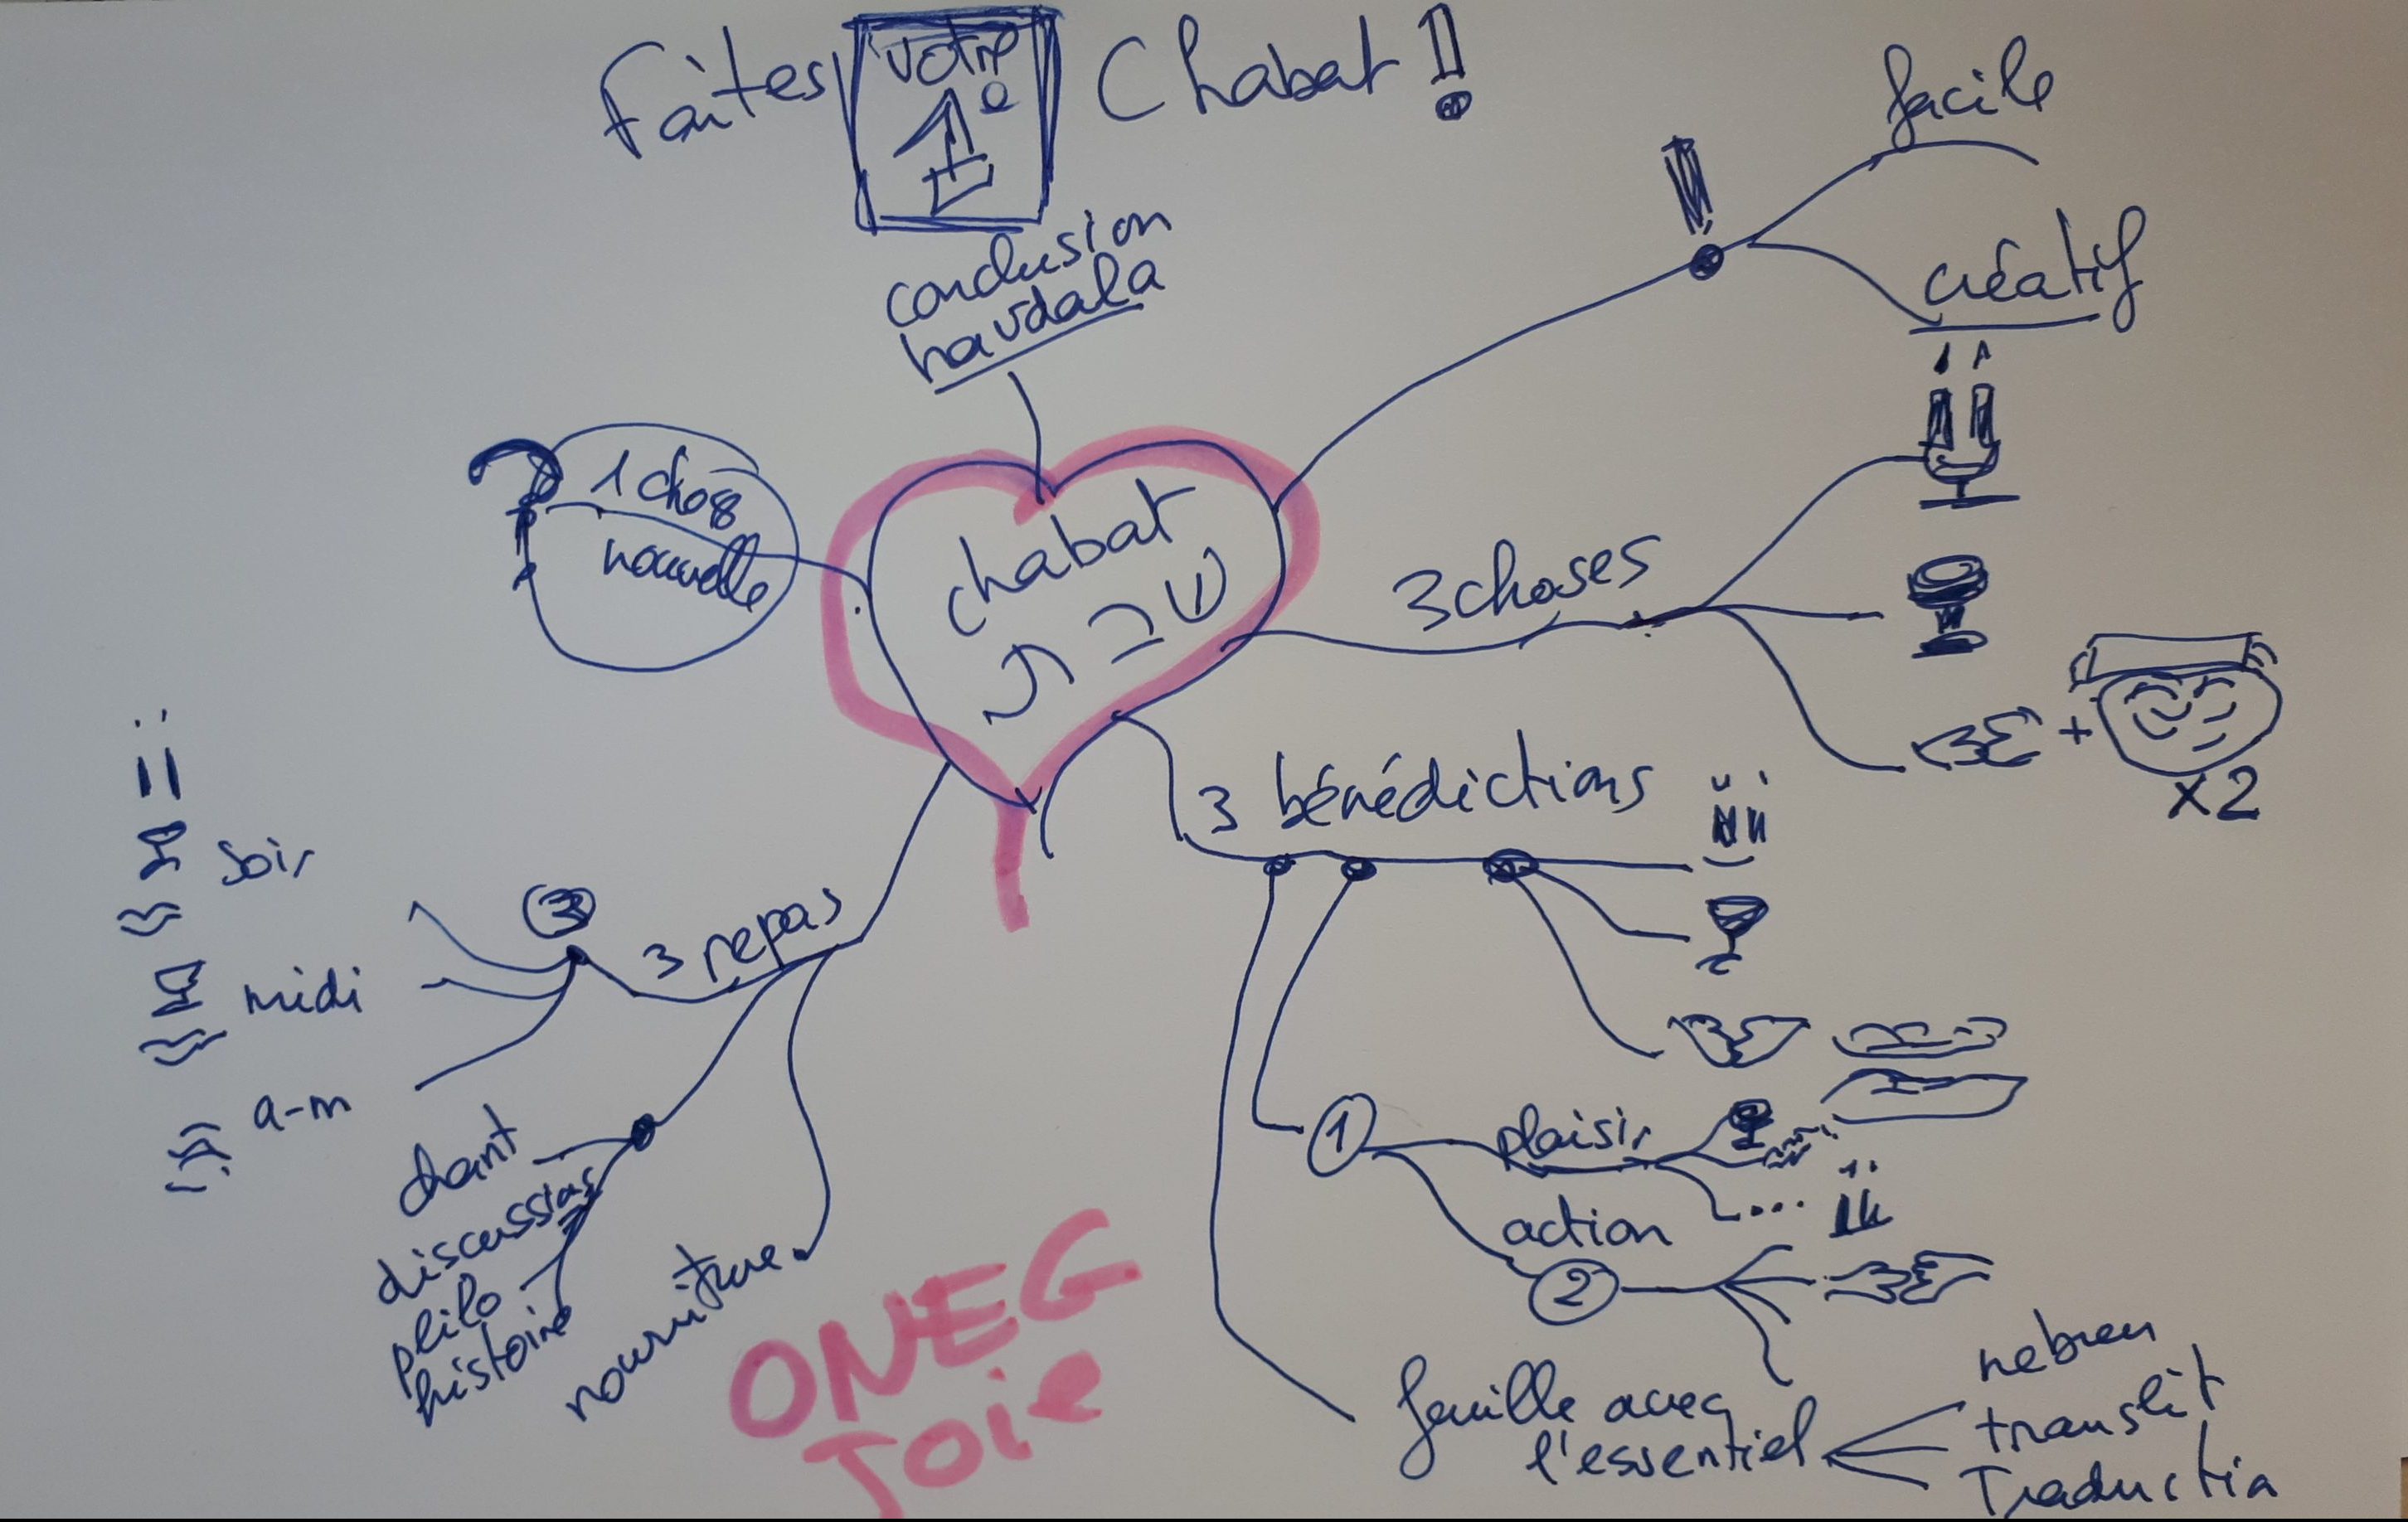 Faites votre 1° Chabat !
conclusion
havdala
facile
créatif
1 chose
nouvelle
chabat
שבת
3 choses
+
x2
3 bénédictions
3 repas
3
soir
midi
a-m
chant
discussion
philo
histoire
nourriture
1
plaisir
...
action
2
feuille avec
l'essentiel
hebreu
translit
Traduction
ONEG
JOie